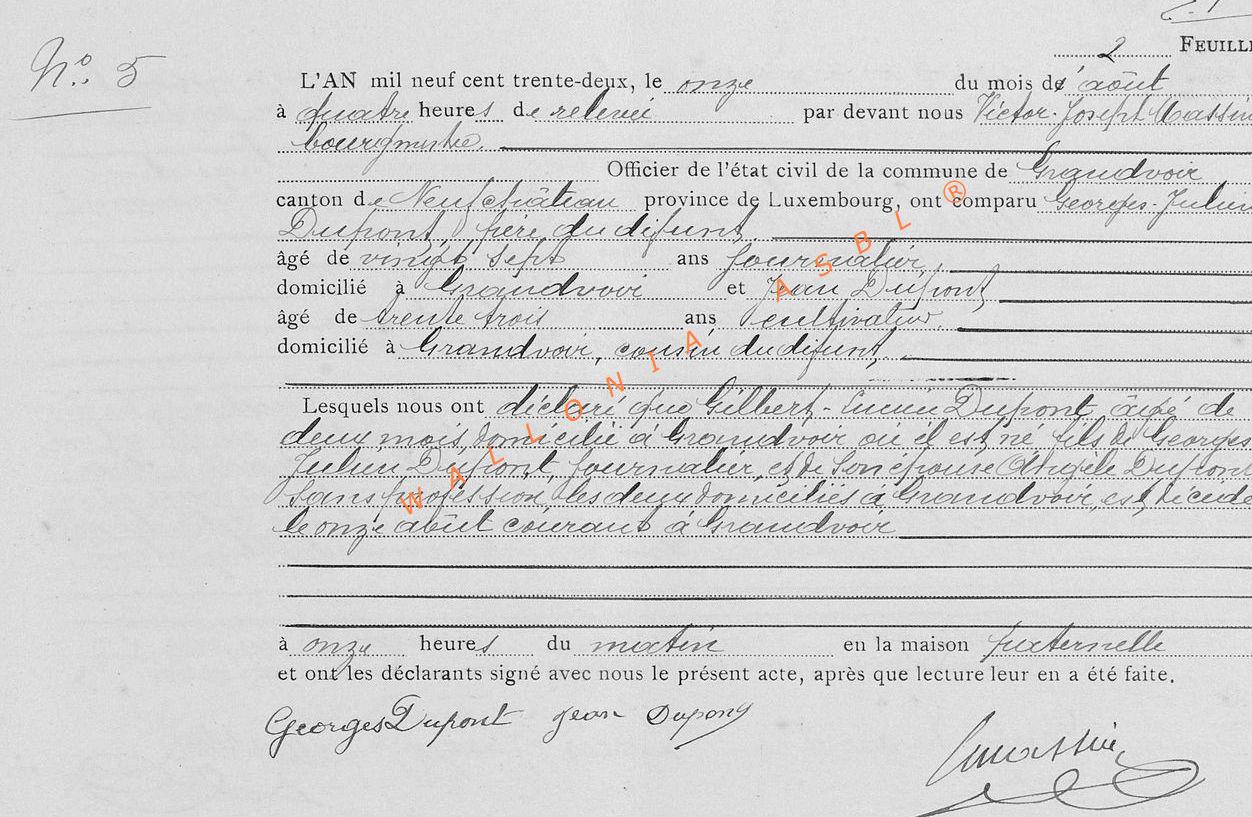 2 FEUILLE
N.º 5
L'AN mil neuf cent trente-deux, le onze du mois d'août
à quatre heures de relevée par devant nous Victor-Joseph Massin
bourgmestre.
Officier de l'état civil de la commune de Grandvoir
canton de Neufchâteau province de Luxembourg, ont comparu Georges-Julien
Dupont, père du défunt,
âgé de vingt sept ans journalier,
domicilié à Grandvoir et Jean Dupont,
âgé de trente trois ans cultivateur
domicilié à Grandvoir, cousin du défunt,
Lesquels nous ont déclaré que Gilbert-Lucien Dupont, âgé de
deux mois, domicilié à Grandvoir où il est né, fils de Georges
Julien Dupont, journalier, et de son épouse Angèle Dupont
sans profession, les deux domiciliés à Grandvoir, est décédé
le onze août courant à Grandvoir
à onze heures du matin en la maison paternelle
et ont les déclarants signé avec nous le présent acte, après que lecture leur en a été faite.
Georges Dupont Jean Dupont
Massin
WALLONIA ASBL ®